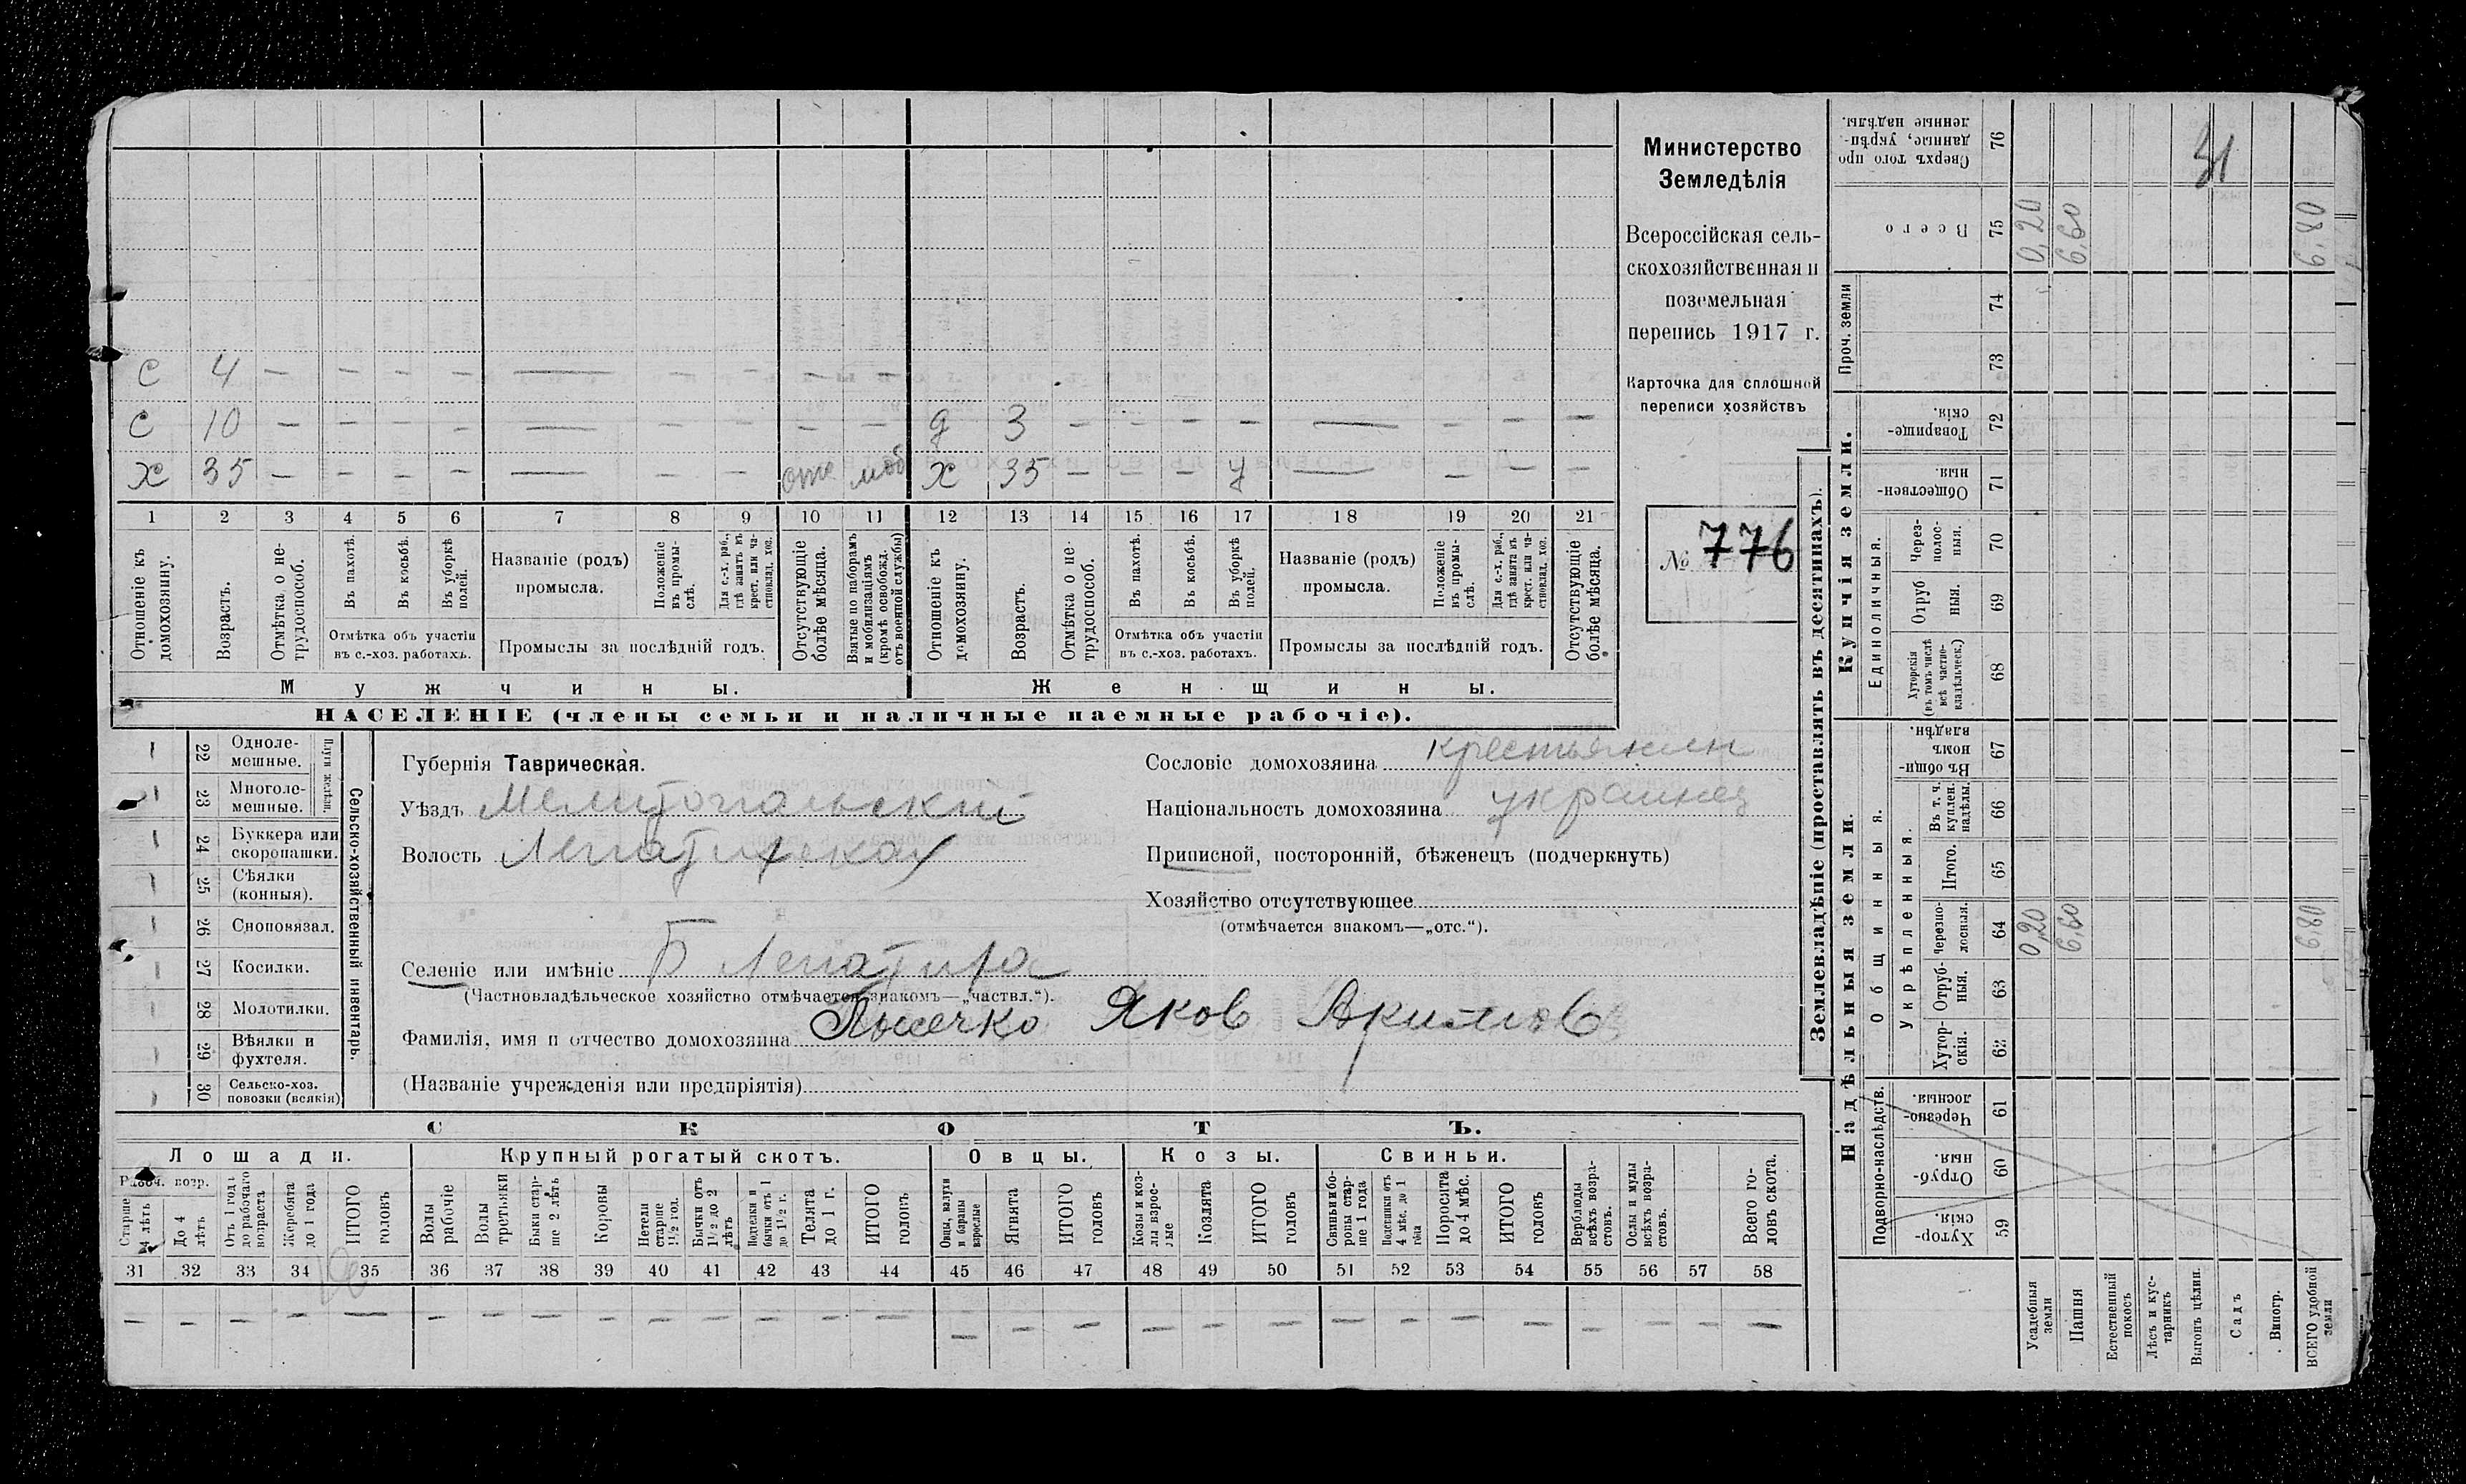 Министерство
Земледѣлія
Всероссійская сель-
скохозяйственная и
поземельная
перепись 1917 г.
Карточка для сплошной
переписи хозяйствъ
№ 776
С 4 — — — — — — — — —
С 10 — — — — — — — — — д 3 — — — — — — — —
Х 35 — — — — — — — отс моб Х 35 — — — у — — — —
1 2 3 4 5 6 7 8 9 10 11 12 13 14 15 16 17 18 19 20 21
Отношеніе къ домохозяину.
Возрастъ.
Отмѣтка о не-трудоспособ.
Въ пахотѣ.
Въ косьбѣ.
Въ уборкѣ полей.
Отмѣтка объ участіи въ с.-хоз. работахъ.
Названіе (родъ) промысла.
Положеніе въ промы-слѣ.
Для с.-х. раб., гдѣ занятъ въ крест. или ча-стновлад. хоз.
Промыслы за послѣдній годъ.
Отсутствующіе болѣе мѣсяца.
Взятые по наборамъ и мобилизаціямъ (кромѣ освобожд. отъ военной службы)
Отношеніе къ домохозяину.
Возрастъ.
Отмѣтка о не-трудоспособ.
Въ пахотѣ.
Въ косьбѣ.
Въ уборкѣ полей.
Отмѣтка объ участіи въ с.-хоз. работахъ.
Названіе (родъ) промысла.
Положеніе въ промы-слѣ.
Для с.-х. раб., гдѣ занята въ крест. или ча-стновлад. хоз.
Промыслы за послѣдній годъ.
Отсутствующіе болѣе мѣсяца.
Мужчины. Женщины.
НАСЕЛЕНІЕ (члены семьи и наличные наемные рабочіе).
22 Одноле-мешные.
23 Многоле-мешные.
Плуги желѣзн.
24 Буккера или скоропашки.
25 Сѣялки (конныя).
26 Сноповязал.
27 Косилки.
28 Молотилки.
29 Вѣялки и фухтеля.
30 Сельско-хоз. повозки (всякія)
Сельско-хозяйственный инвентарь.
Губернія Таврическая.
Уѣздъ Мелитопольский
Волость Лепатихская
Селеніе или имѣніе Б Лепатиха
(Частновладѣльческое хозяйство отмѣчается знакомъ—„частвл.“).
Фамилія, имя и отчество домохозяина Яков Акимов
(Названіе учрежденія или предпріятія)
Сословіе домохозяина крестьянин
Національность домохозяина украинец
Приписной, посторонній, бѣженецъ (подчеркнуть)
Хозяйство отсутствующее
(отмѣчается знакомъ—„отс.“).
СКОТЪ.
Лошади. Крупный рогатый скотъ. Овцы. Козы. Свиньи.
Рабоч. возр.
Старше 4 лѣтъ
До 4 лѣтъ
Отъ 1 года до рабочаго возраста
Жеребята до 1 года
ИТОГО головъ
Волы рабочіе
Волы третьяки
Быки стар-ше 2 лѣтъ
Коровы
Нетели старше 1½ год.
Бычки отъ 1½ до 2 лѣтъ
Подтелки и бычки отъ 1 до 1½ г.
Телята до 1 г.
ИТОГО головъ
Овцы, валухи и бараны взрослые
Ягнята
ИТОГО головъ
Козы и коз-лы взрос-лые
Козлята
ИТОГО головъ
Свиньи и бо-ровы стар-ше 1 года
Подсвинки отъ 4 мѣс. до 1 года
Поросята до 4 мѣс.
ИТОГО головъ
Верблюды всѣхъ возра-стовъ.
Ослы и мулы всѣхъ возра-стовъ.
Всего го-ловъ скота.
31 32 33 34 35 36 37 38 39 40 41 42 43 44 45 46 47 48 49 50 51 52 53 54 55 56 57 58
— — — — — — — — — — — — — — — — — — — — — — — — — — — —
Землевладѣніе (проставлять въ десятинахъ).
Купчія земли.
Надѣльныя земли.
76 Сверхъ того про-данные, укрѣп-ленные надѣлы.
31
75 Всего 0,20 6,60 6,80
Проч. земли 74 73
72 Товарище-скія.
71 Обществен-ныя.
Единоличныя.
70 Через-полос-ныя.
69 Отруб-ныя.
68 Хуторскія (въ томъ числѣ всѣ частно-владѣльческ.)
Общинныя.
67 Въ общи-номъ владѣн.
Укрѣпленныя.
66 Въ т. ч. куплен. надѣлы.
65 Итого.
64 Черезпо-лосныя. 0,20 6,60 6,80
63 Отруб-ныя.
62 Хутор-скія.
Подворно-наслѣдств.
61 Черезпо-лосныя.
60 Отруб-ныя.
59 Хутор-скія.
Усадебныя земли
Пашня
Естественный покосъ
Лѣсъ и кус-тарникъ
Выгонъ цѣлин.
Садъ
Виногр.
ВСЕГО удобной земли